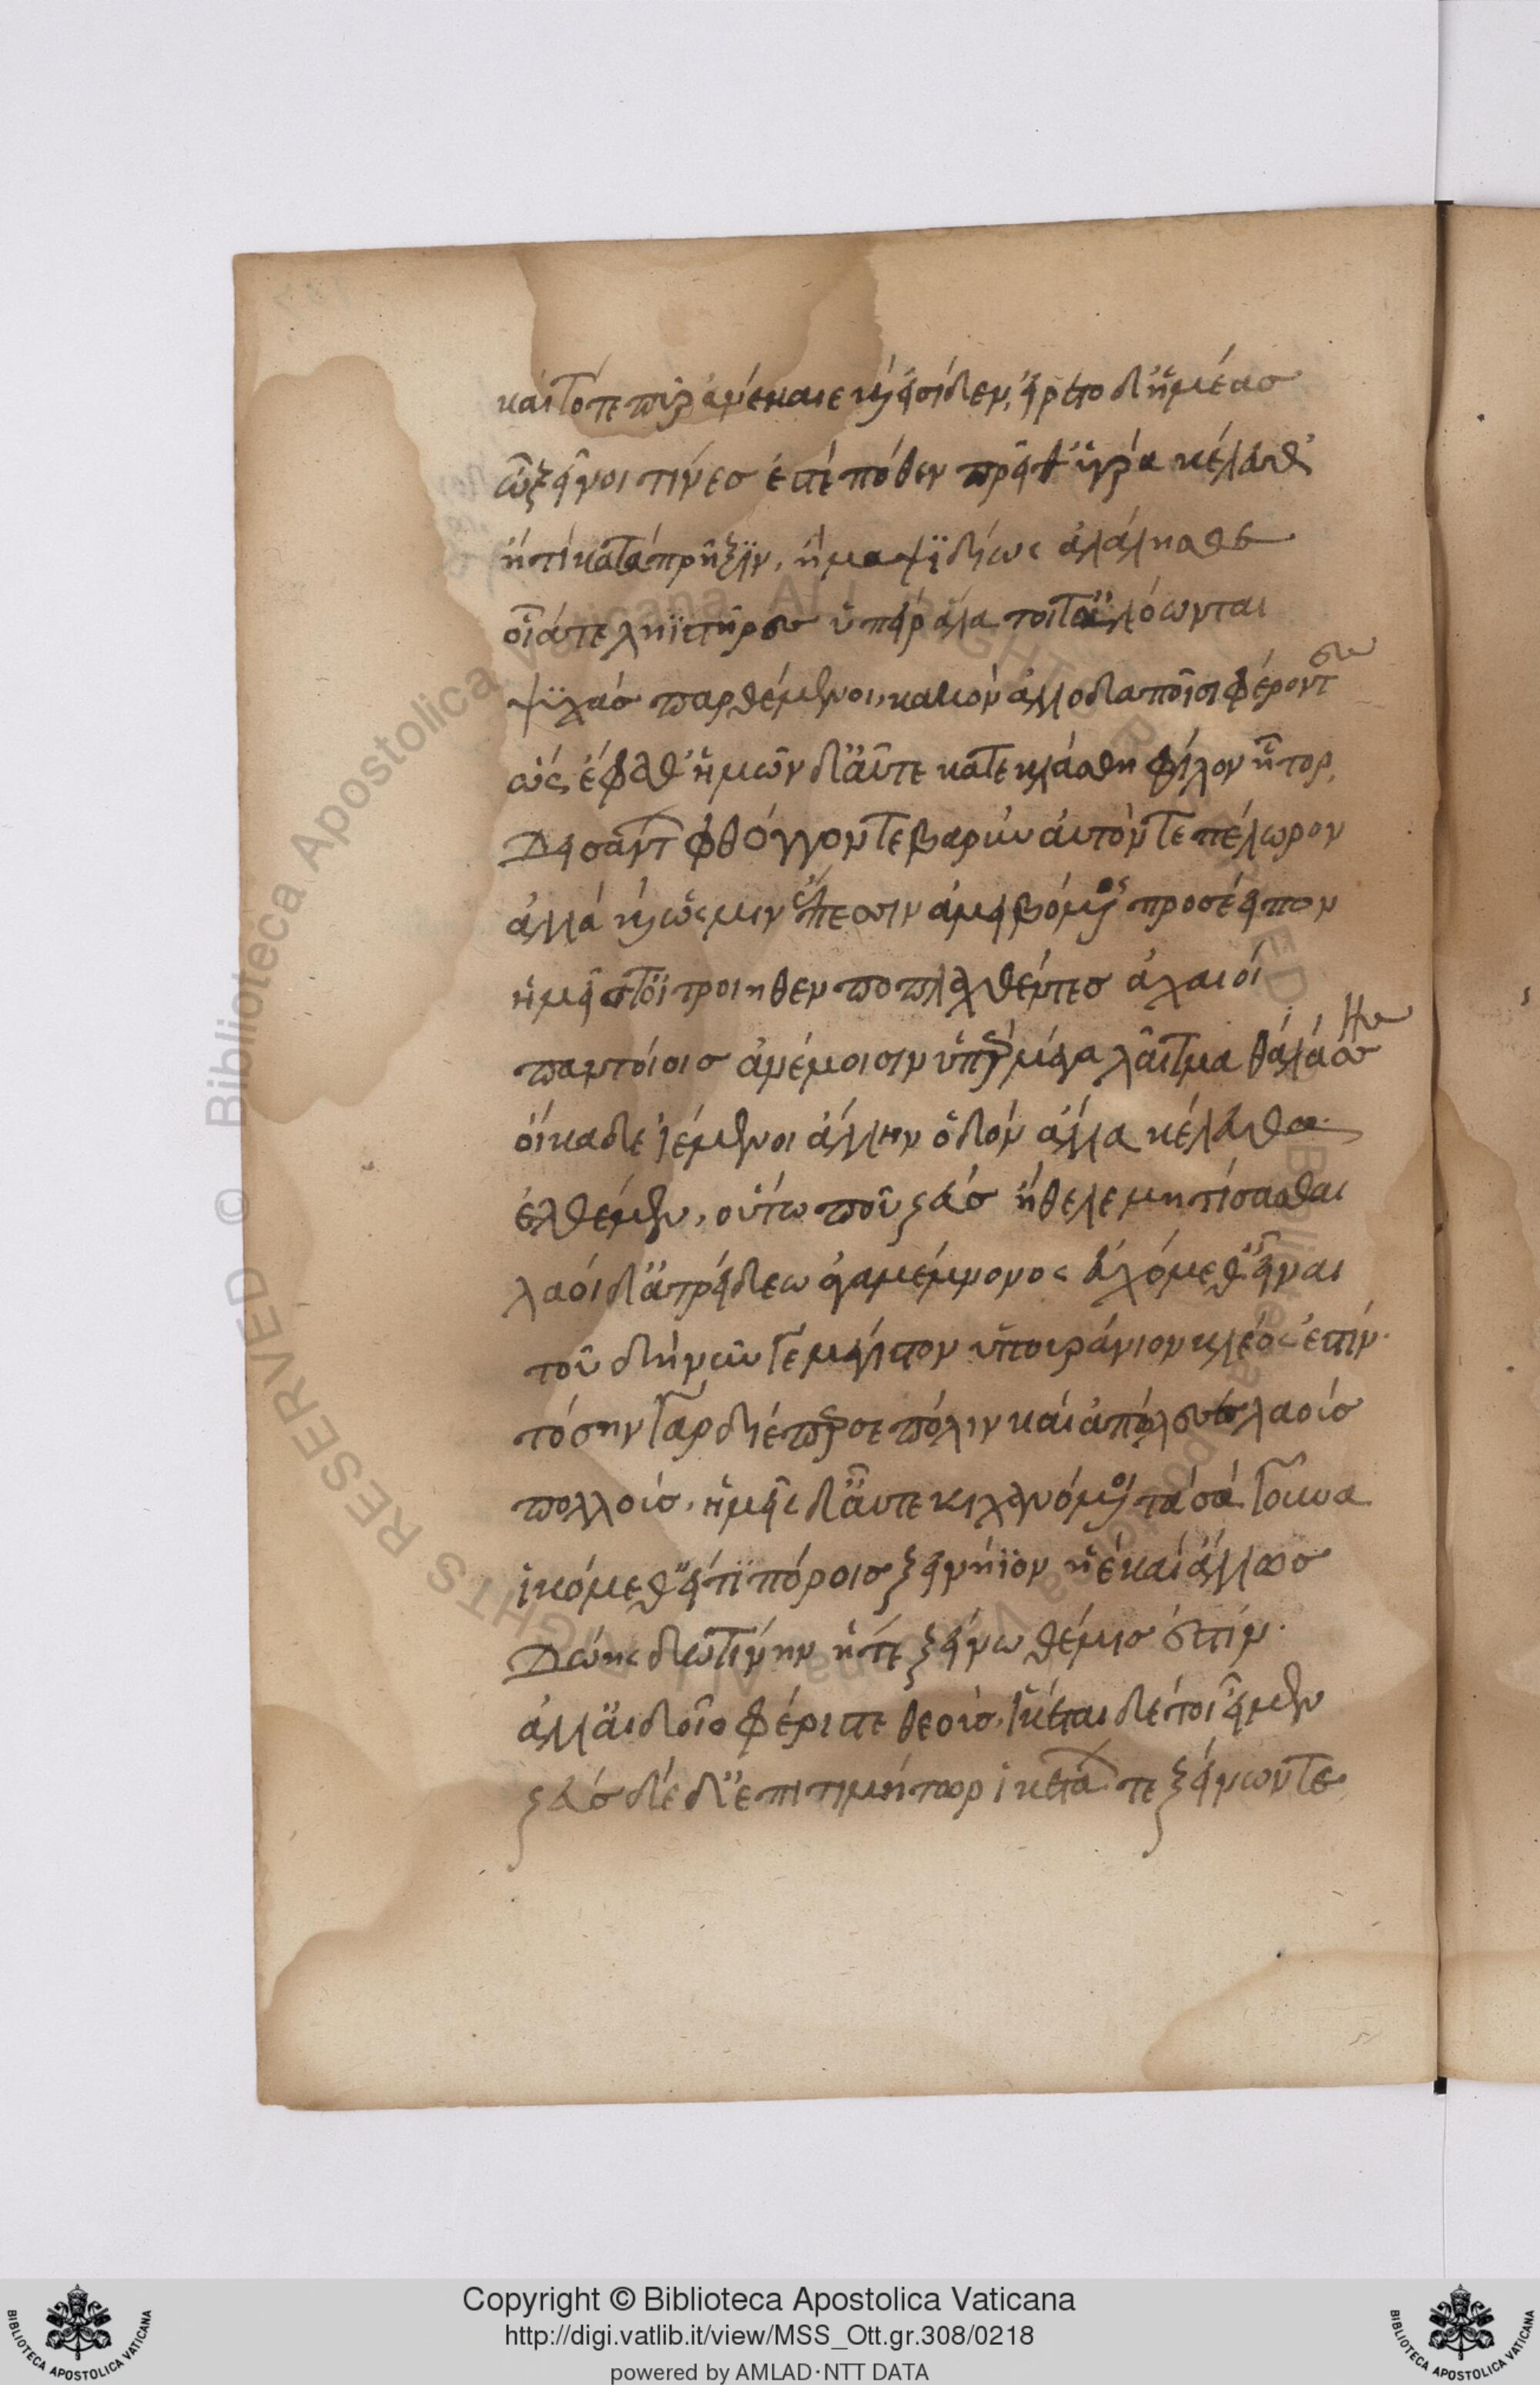 καὶ τότε πῦρ ἀνέκαιε καὶ εἴσιδεν, εἴρετο δ' ἡμέας
ὦ ξεῖνοι τίνες ἐστέ πόθεν πλεῖθ' ὑγρὰ κέλευθα
ἤ τι κατὰ πρῆξιν, ἢ μαψιδίως ἀλάλησθε
οἷά τε ληϊστῆρες ὑπεὶρ ἅλα τοί τ' ἀλόωνται
ψυχὰς παρθέμενοι, κακὸν ἀλλοδαποῖσι φέροντες
ὣς ἔφαθ' ἡμῶν δ' αὖτε κατεκλάσθη φίλον ἦτορ,
Δεισάντων φθόγγον τε βαρὺν αὐτόν τε πέλωρον
ἀλλὰ καὶ ὧς μιν ἔπεσσιν ἀμειβόμενος προσέειπον
ἡμεῖς τοι τροίηθεν ἀποπλαχθέντες ἀχαιοὶ
παντοίοις ἀνέμοισιν ὑπὲρ μέγα λαῖτμα θαλάσσης
οἴκαδε ἱέμενοι ἄλλην ὁδὸν ἄλλα κέλευθα
ἐλθέμεν, οὕτω που ζεὺς ἤθελε μητίσασθαι
λαοὶ δ' ἀτρείδεω ἀγαμέμνονος εὐχόμεθ' εἶναι
τοῦ δὴ νῦν γε μέγιστον ὑπουράνιον κλέος ἐστίν.
τόσσην γὰρ διέπερσε πόλιν καὶ ἀπώλεσε λαοὺς
πολλούς, ἡμεῖς δ' αὖτε κιχανόμενοι τὰ σὰ γοῦνα
ἱκόμεθ' εἴ τι πόροις ξεινήϊον ἠὲ καὶ ἄλλως
Δώης δωτίνην ἥ τε ξείνω θέμις ἐστίν.
ἀλλ' αἰδοῖο φέριστε θεούς, ἱκέται δέ τοι εἰμὲν
ζεὺς δὲ δ' ἐπιτιμήτωρ ἱκετάων τε ξείνων τε
Copyright © Biblioteca Apostolica Vaticana
http://digi.vatlib.it/view/MSS_Ott.gr.308/0218
powered by AMLAD·NTT DATA